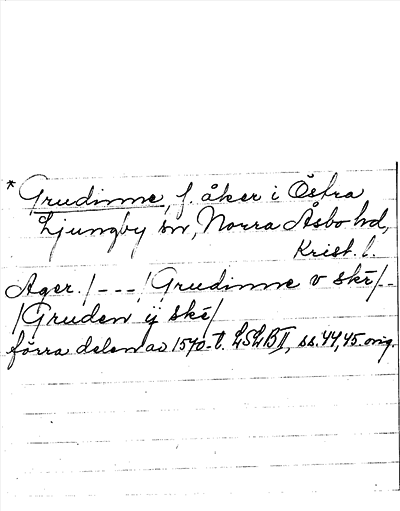 * Grudinne, f. åker i Östra
Ljungby sn, Norra Åsbo hd,
Krist. l.
Ager. /---/ Grudinne v skē/--
/Gruden ij skē/
förra delen av 1570-t. LSLB II, ss. 44, 45. orig.